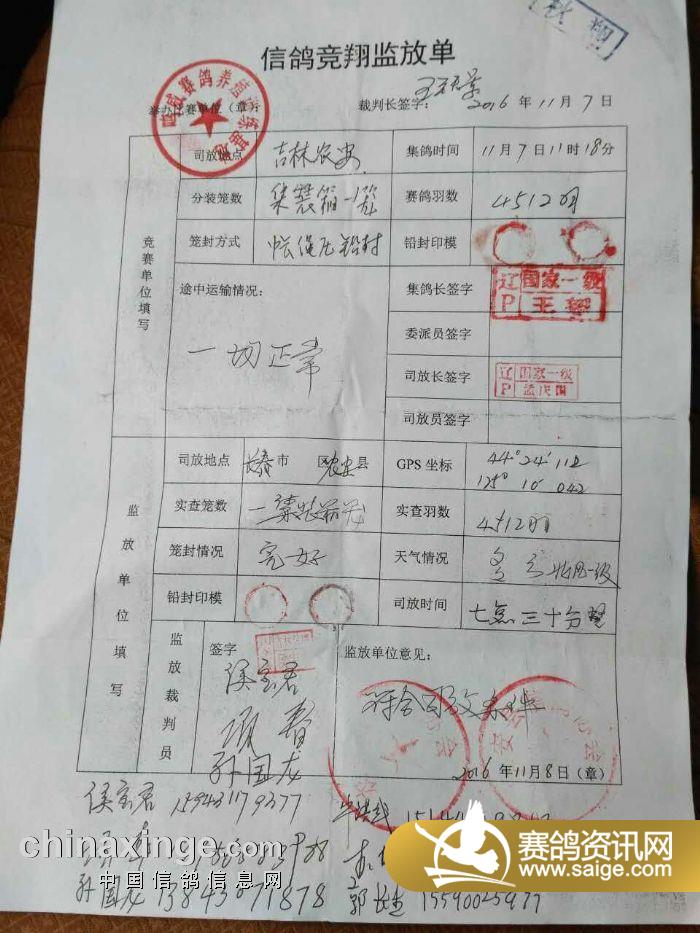 秋翔
信鸽竞翔监放单
举办比赛单位（章）： 裁判长签字： 2016年11月7日
竞赛单位填写
司放地点 吉林农安 集鸽时间 11月7日11时18分
分装笼数 集装箱一笼 赛鸽羽数 4512羽
笼封方式 铅封 铅封印模
途中运输情况： 集鸽长签字 辽P 国家一级
一切正常
委派员签字
司放长签字 辽P 国家一级
司放员签字
监放单位填写
司放地点 长春市 区农安县 GPS坐标 44°24′112
125°10′042
实查笼数 实查羽数 4512羽
笼封情况 完好 天气情况 多云 北风一级
铅封印模 司放时间 七点三十分整
监放裁判员 签字 监放单位意见：
侯宝君
孙国龙
符合司放条件
2016年11月8日（章）
侯宝君 13943179377
孙国龙 13843071878
郭长生 15590025977
chinaxinge.com
中国信鸽信息网
赛鸽资讯网
www.saige.com